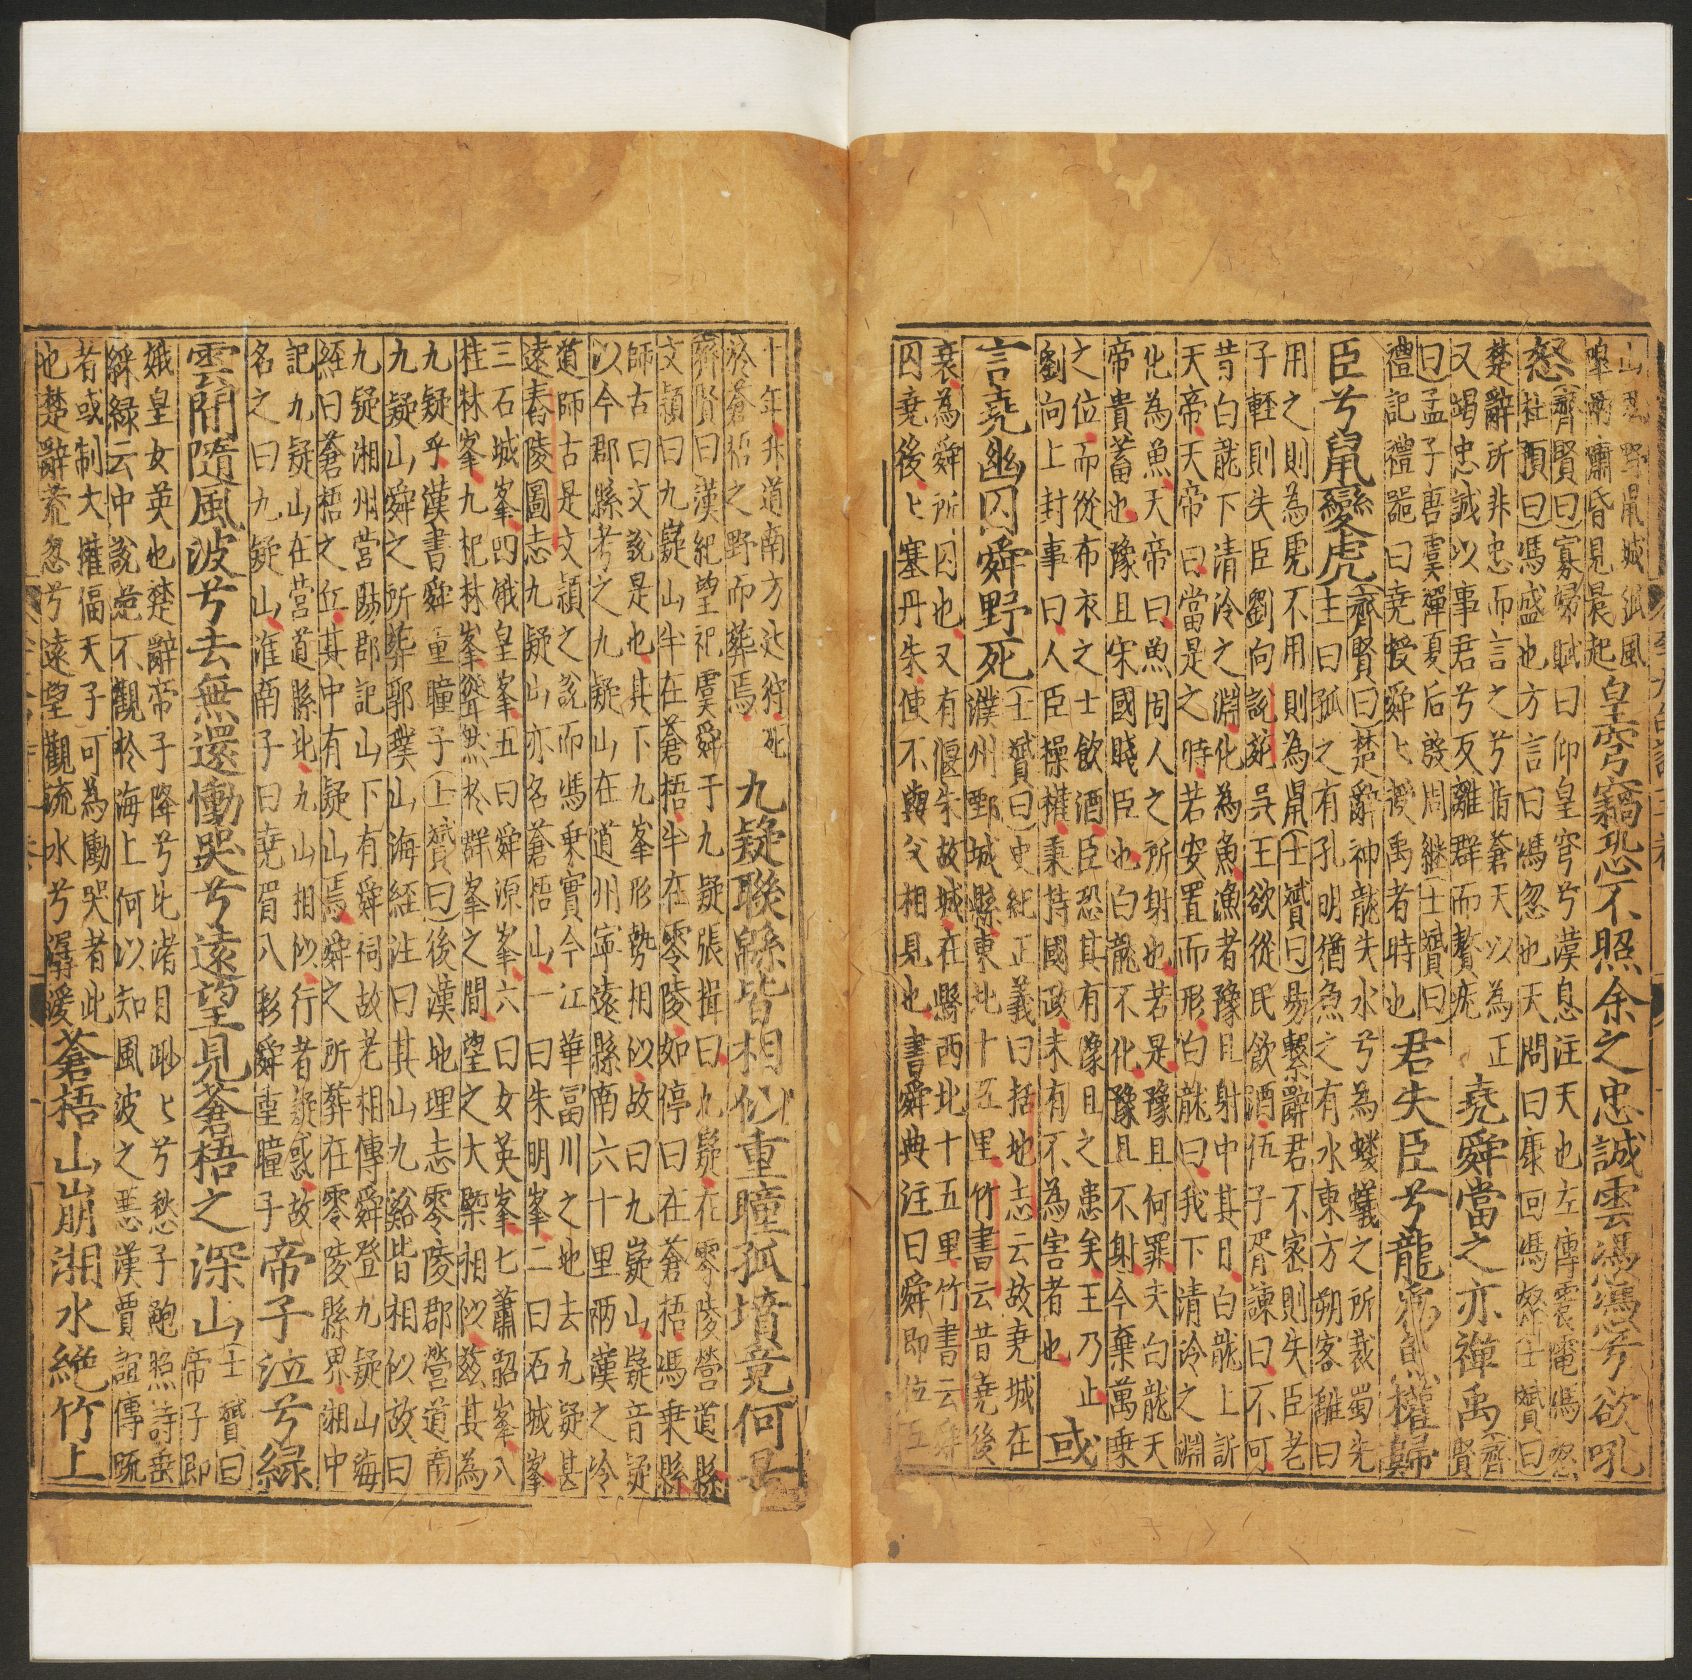 皇穹竊恐不照余之忠誠雲馮馮兮欲吼
怒
齊賢曰寡婦賦曰仰皇穹兮漠息注天也左傳震電馮怒
杜預曰馮盛也方言曰馮忽也天問曰康回馮怒士贇曰
楚辭所非忠而言之兮指蒼天以為正
又竭忠誠以事君兮反離群而贅疣
堯舜當之亦禪禹
齊賢
曰孟子唐虞禪夏后殷周繼士贇曰
禮記禮器曰堯授舜舜授禹者時也
君失臣兮龍為魚權歸
臣兮鼠變虎
齊賢曰楚辭神龍失水兮為螻蟻之所裁蜀先
主曰孤之有孔明猶魚之有水東方朔客難曰
用之則為虎不用則為鼠士贇曰易繫辭君不密則失臣老
子輕則失臣劉向說苑吳王欲從民飲酒伍子胥諫曰不可
昔白龍下清冷之淵化為魚漁者豫且射中其目白龍上訴
天帝天帝曰當是之時若安置而形白龍曰我下清泠之淵
化為魚天帝曰魚固人之所射也若是豫且何罪夫白龍天
帝貴畜也豫且宋國賤臣也白龍不化豫且不射今棄萬乗
之位而從布衣之士飲酒臣恐其有豫且之患矣王乃止
劉向上封事曰人臣操權秉持國政未有不為害者也
或
言堯幽囚舜野死
士贇曰史紀正義曰括地志云故堯城在
濮州鄄城縣東北十五里竹書云昔堯德
衰為舜所囚也又有偃朱故城在縣西北十五里竹書云舜
囚堯後塞丹朱使不與父相見也書舜典注曰舜即位五
十年升道南方廵狩死
於蒼梧之野而葬焉
九疑聯綿皆相似重瞳孤墳竟何是
齊賢曰漢紀望祀虞舜于九疑張揖曰九疑在零陵營道縣
文穎曰九嶷山半在蒼梧半在零陵如停曰在蒼梧馮乗縣
師古曰文說是也其下九峯形勢相似故曰九嶷山嶷音疑
以今郡縣考之九疑山在道州寧遠縣南六十里兩漢之泠
道師古是文穎之說而馮乗實今江華冨川之地去九疑甚
遠舂陵圖志九疑山亦名蒼梧山一曰朱明峯二曰石城峯
三石城峯四娥皇峯五曰舜源峯六曰女英峯七蕭韶峯八
桂林峯九杞林峯聳然於群峯之間望之大槩相似兹其為
九疑乎漢書舜重瞳子士贇曰後漢地理志零陵郡營道南
九疑山舜之所葬郭璞山海經注曰其山九谿皆相似故曰
九疑湘州營陽郡記山下有舜祠故老相傳舜登九疑山海
經曰蒼梧之丘其中有疑山焉舜之所葬在零陵縣界湘中
記九疑山在營道縣北九山相似行者疑惑故
名之曰九疑山淮南子曰堯眉八彩舜重瞳子
帝子泣兮緑
雲間隨風波兮去無還慟哭兮遠望見蒼梧之深山
士贇曰
帝子即
娥皇女英也楚辭帝子降兮北渚目眇眇兮愁子鮑照詩垂
綵緑云中說苑不觀於海上何以知風波之患漢賈誼傳䟽
者或制大權偪天子可為慟哭者此
也楚辭荒忽兮遠望觀流水兮潺湲
蒼梧山崩湘水絶竹上